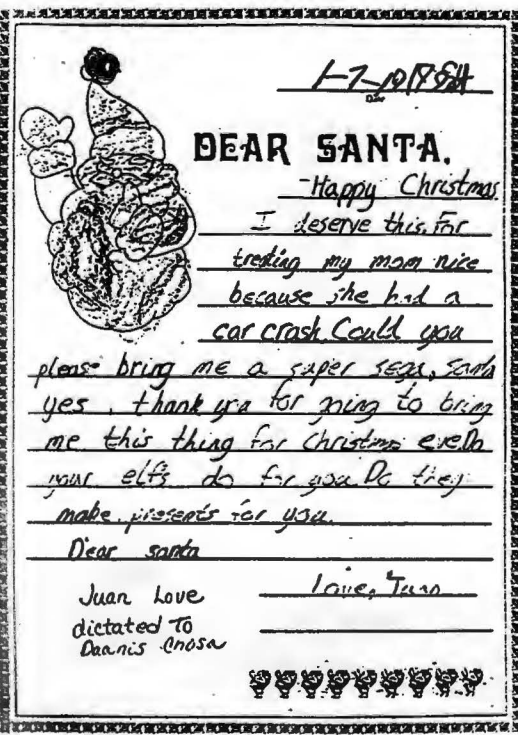 DEAR SANTA.
-Happy Christmas
I deserve this. For
treating my mom nice
because she had a
car crash. Could you
please bring me a super sega, Santa
yes, thank you for going to bring
me this thing for Christmas eve. Do
your elfs do for you. Do they
make presents for you.
Dear santa
Love, Juan
Juan Love
dictated To